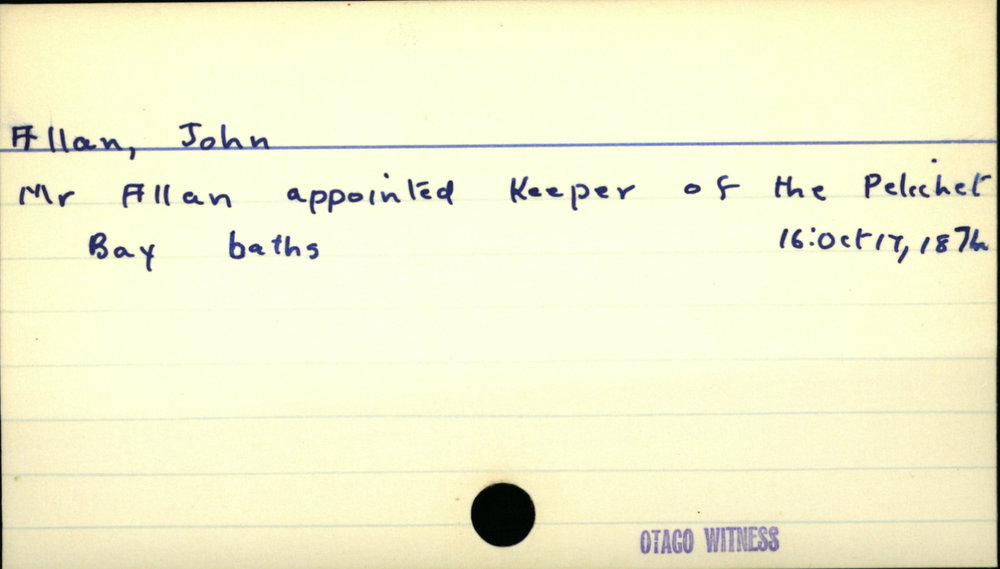 Allan, John
Mr Allan appointed Keeper of the Pelichet
Bay baths 16:Oct 17, 1874
OTAGO WITNESS